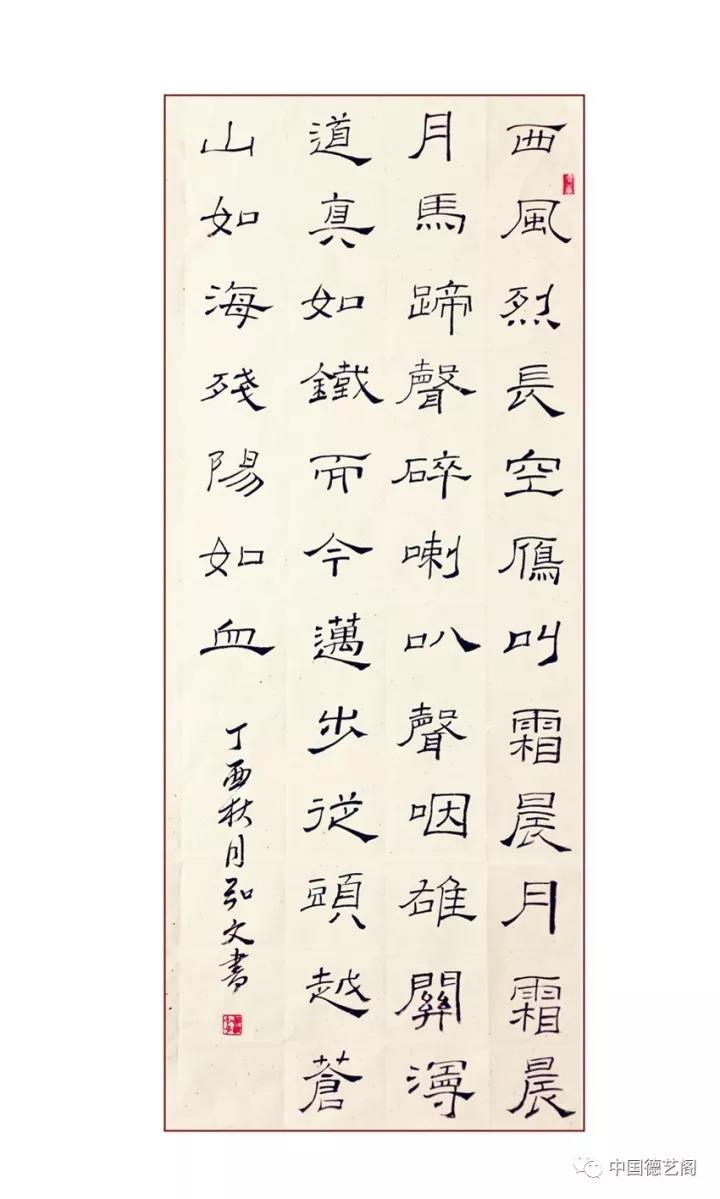 西風烈長空鴈叫霜晨月霜晨
月馬蹄聲碎喇叭聲咽雄關漫
道真如鐵而今邁步從頭越蒼
山如海殘陽如血
丁酉秋月弘文書
中国德艺阁